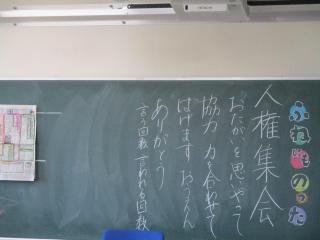 人権集会
おたがいを思いやって
協力 力を合わせて
はげます おうえん
ありがとう
言う回数 言われる回数